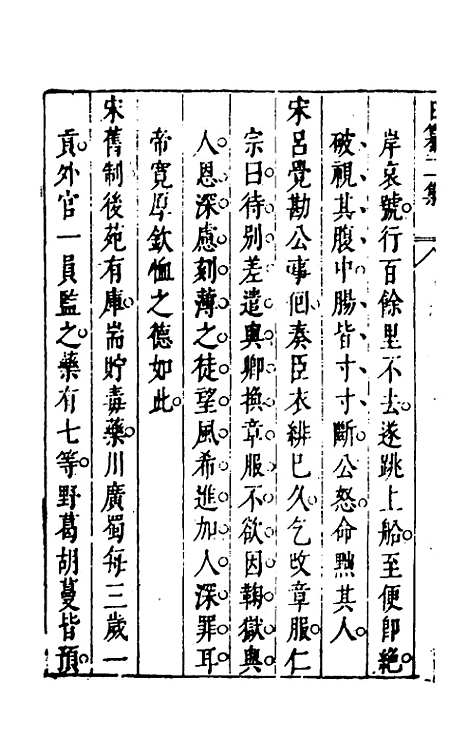 岸哀號。行百餘里不去。遂跳上船。至便即絕。
破視其腹中。腸皆寸寸斷。公怒。命黜其人。
宋呂覺勘公事回。奏臣衣緋已久。乞改章服。仁
宗曰。待別差遣與卿換章服。不欲因鞫獄與
人恩。深慮刻薄之徒。望風希進。加人深罪耳。
帝寬厚欽恤之德如此。
宋舊制後苑有庫。耑貯毒藥。川廣蜀每三歲一
貢。外官一員監之。藥有七等。野葛胡蔓皆預。